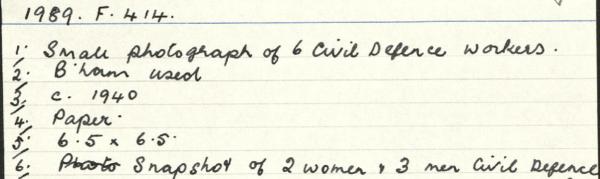 1989. F. 414.
1. Small photograph of 6 Civil Defence workers.
2. B'ham used
3. c. 1940
4. Paper.
5. 6.5 x 6.5.
6. Photo Snapshot of 2 women & 3 men Civil Defence